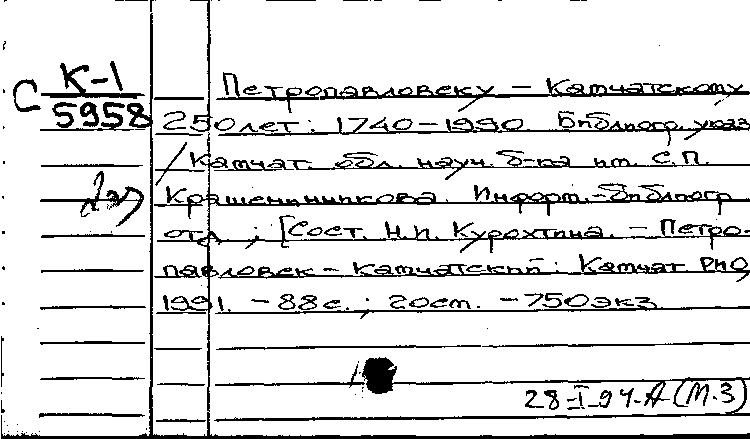 С К-1
5958
Петропавловску - Камчатскому
250 лет: 1740-1990. Библиогр. указ
/Камчат. обл. науч. б-ка им. С.П.
Крашенинникова. Информ.-библиогр
отд ; [Сост. Н.И. Курохтина. - Петро-
павловск-Камчатский: Камчат РИО,
1991. - 88 с.; 20 см. - 750 экз
28-I-94-А (М.З)